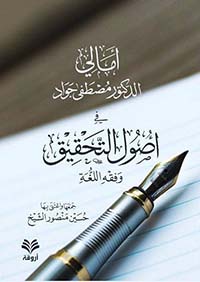 أمالي
الدكتور مصطفى جواد
في
أصول التحقيق
وفقه اللغة
جمعها واعتنى بها
حسين منصور الشيخ
أروقة